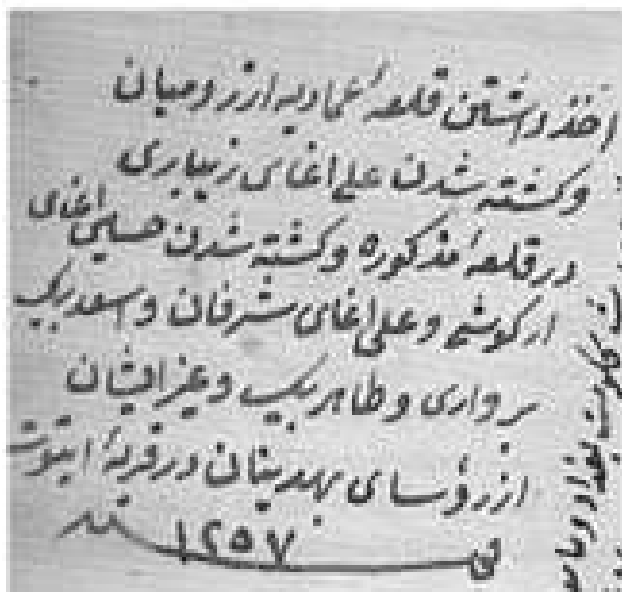 اخذ داشتن قلعهٔ عمادیه از رومیان
و کشته شدن علی اغای زیباری
در قلعهٔ مذکوره و کشته شدن حسین اغای
ارکوشی و علی اغای شرفان و اسعد بیک
برواری و طاهر بیک و غیر ایشان
از رؤسای بهدینان در قریهٔ ایتوت
فی ١٢٥٧ سنه
بغداد و